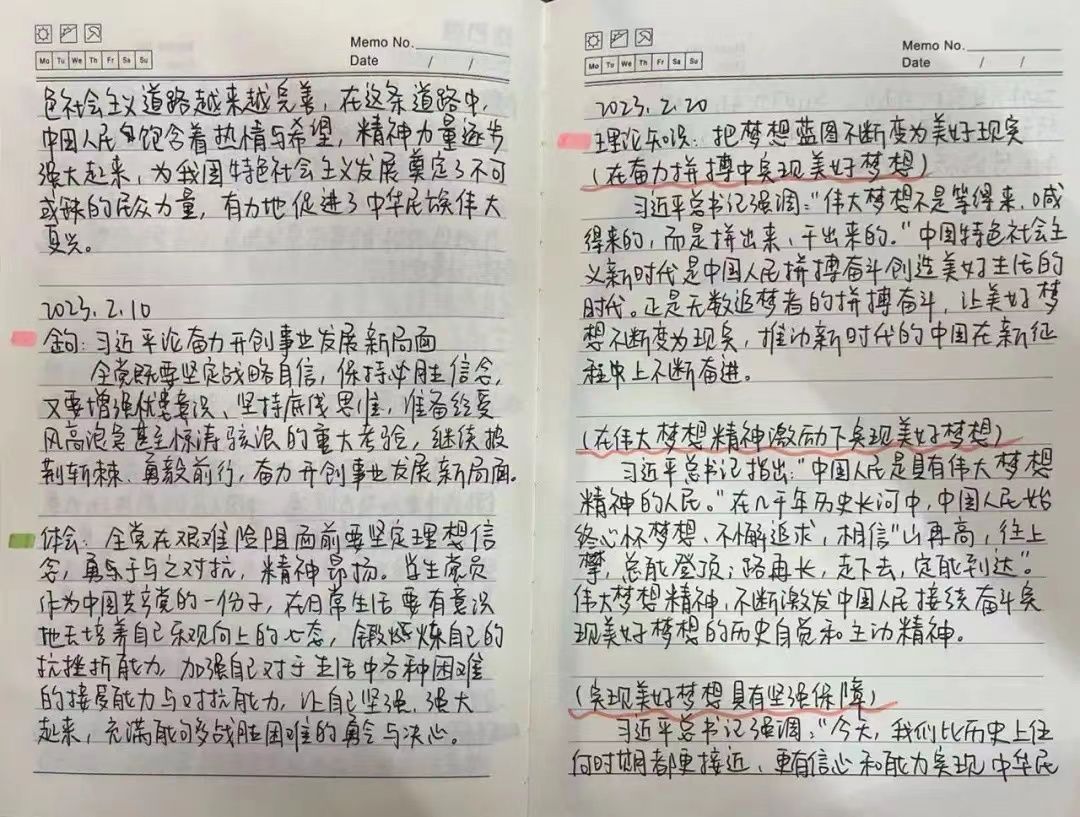 Memo No.
Date / /
Mo Tu We Th Fr Sa Su
色社会主义道路越来越完善，在这条道路中，
中国人民饱含着热情与希望，精神力量逐步
强大起来，为我国特色社会主义发展奠定了不可
或缺的民众力量，有力地促进了中华民族伟大
复兴。
2023.2.10
金句：习近平论奋力开创事业发展新局面
全党既要坚定战略自信，保持必胜信念，
又要增强忧患意识、坚持底线思维，准备经受
风高浪急甚至惊涛骇浪的重大考验，继续披
荆斩棘、勇毅前行，奋力开创事业发展新局面。
体会：全党在艰难险阻面前要坚定理想信
念，勇于与之对抗，精神昂扬。学生党员
作为中国共产党的一份子，在日常生活要有意识
地去培养自己乐观向上的心态，锻炼自己的
抗挫折能力，加强自己对于生活中各种困难
的接受能力与对抗能力，让自己坚强、强大
起来，充满能够战胜困难的勇气与决心。
Memo No.
Date / /
Mo Tu We Th Fr Sa Su
2023.2.20
理论知识：把梦想蓝图不断变为美好现实
（在奋力拼搏中实现美好梦想）
习近平总书记强调：“伟大梦想不是等得来、喊
得来的，而是拼出来、干出来的。”中国特色社会主
义新时代是中国人民拼搏奋斗创造美好生活的
时代。正是无数追梦者的拼搏奋斗，让美好梦
想不断变为现实，推动新时代的中国在新征
程中上不断奋进。
（在伟大梦想精神激励下实现美好梦想）
习近平总书记指出：“中国人民是具有伟大梦想
精神的人民。”在几千年历史长河中，中国人民始
终心怀梦想、不懈追求，相信“山再高，往上
攀，总能登顶；路再长，走下去，定能到达”。
伟大梦想精神，不断激发中国人民接续奋斗实
现美好梦想的历史自觉和主动精神。
（实现美好梦想具有坚强保障）
习近平总书记强调：“今天，我们比历史上任
何时期都更接近、更有信心和能力实现中华民